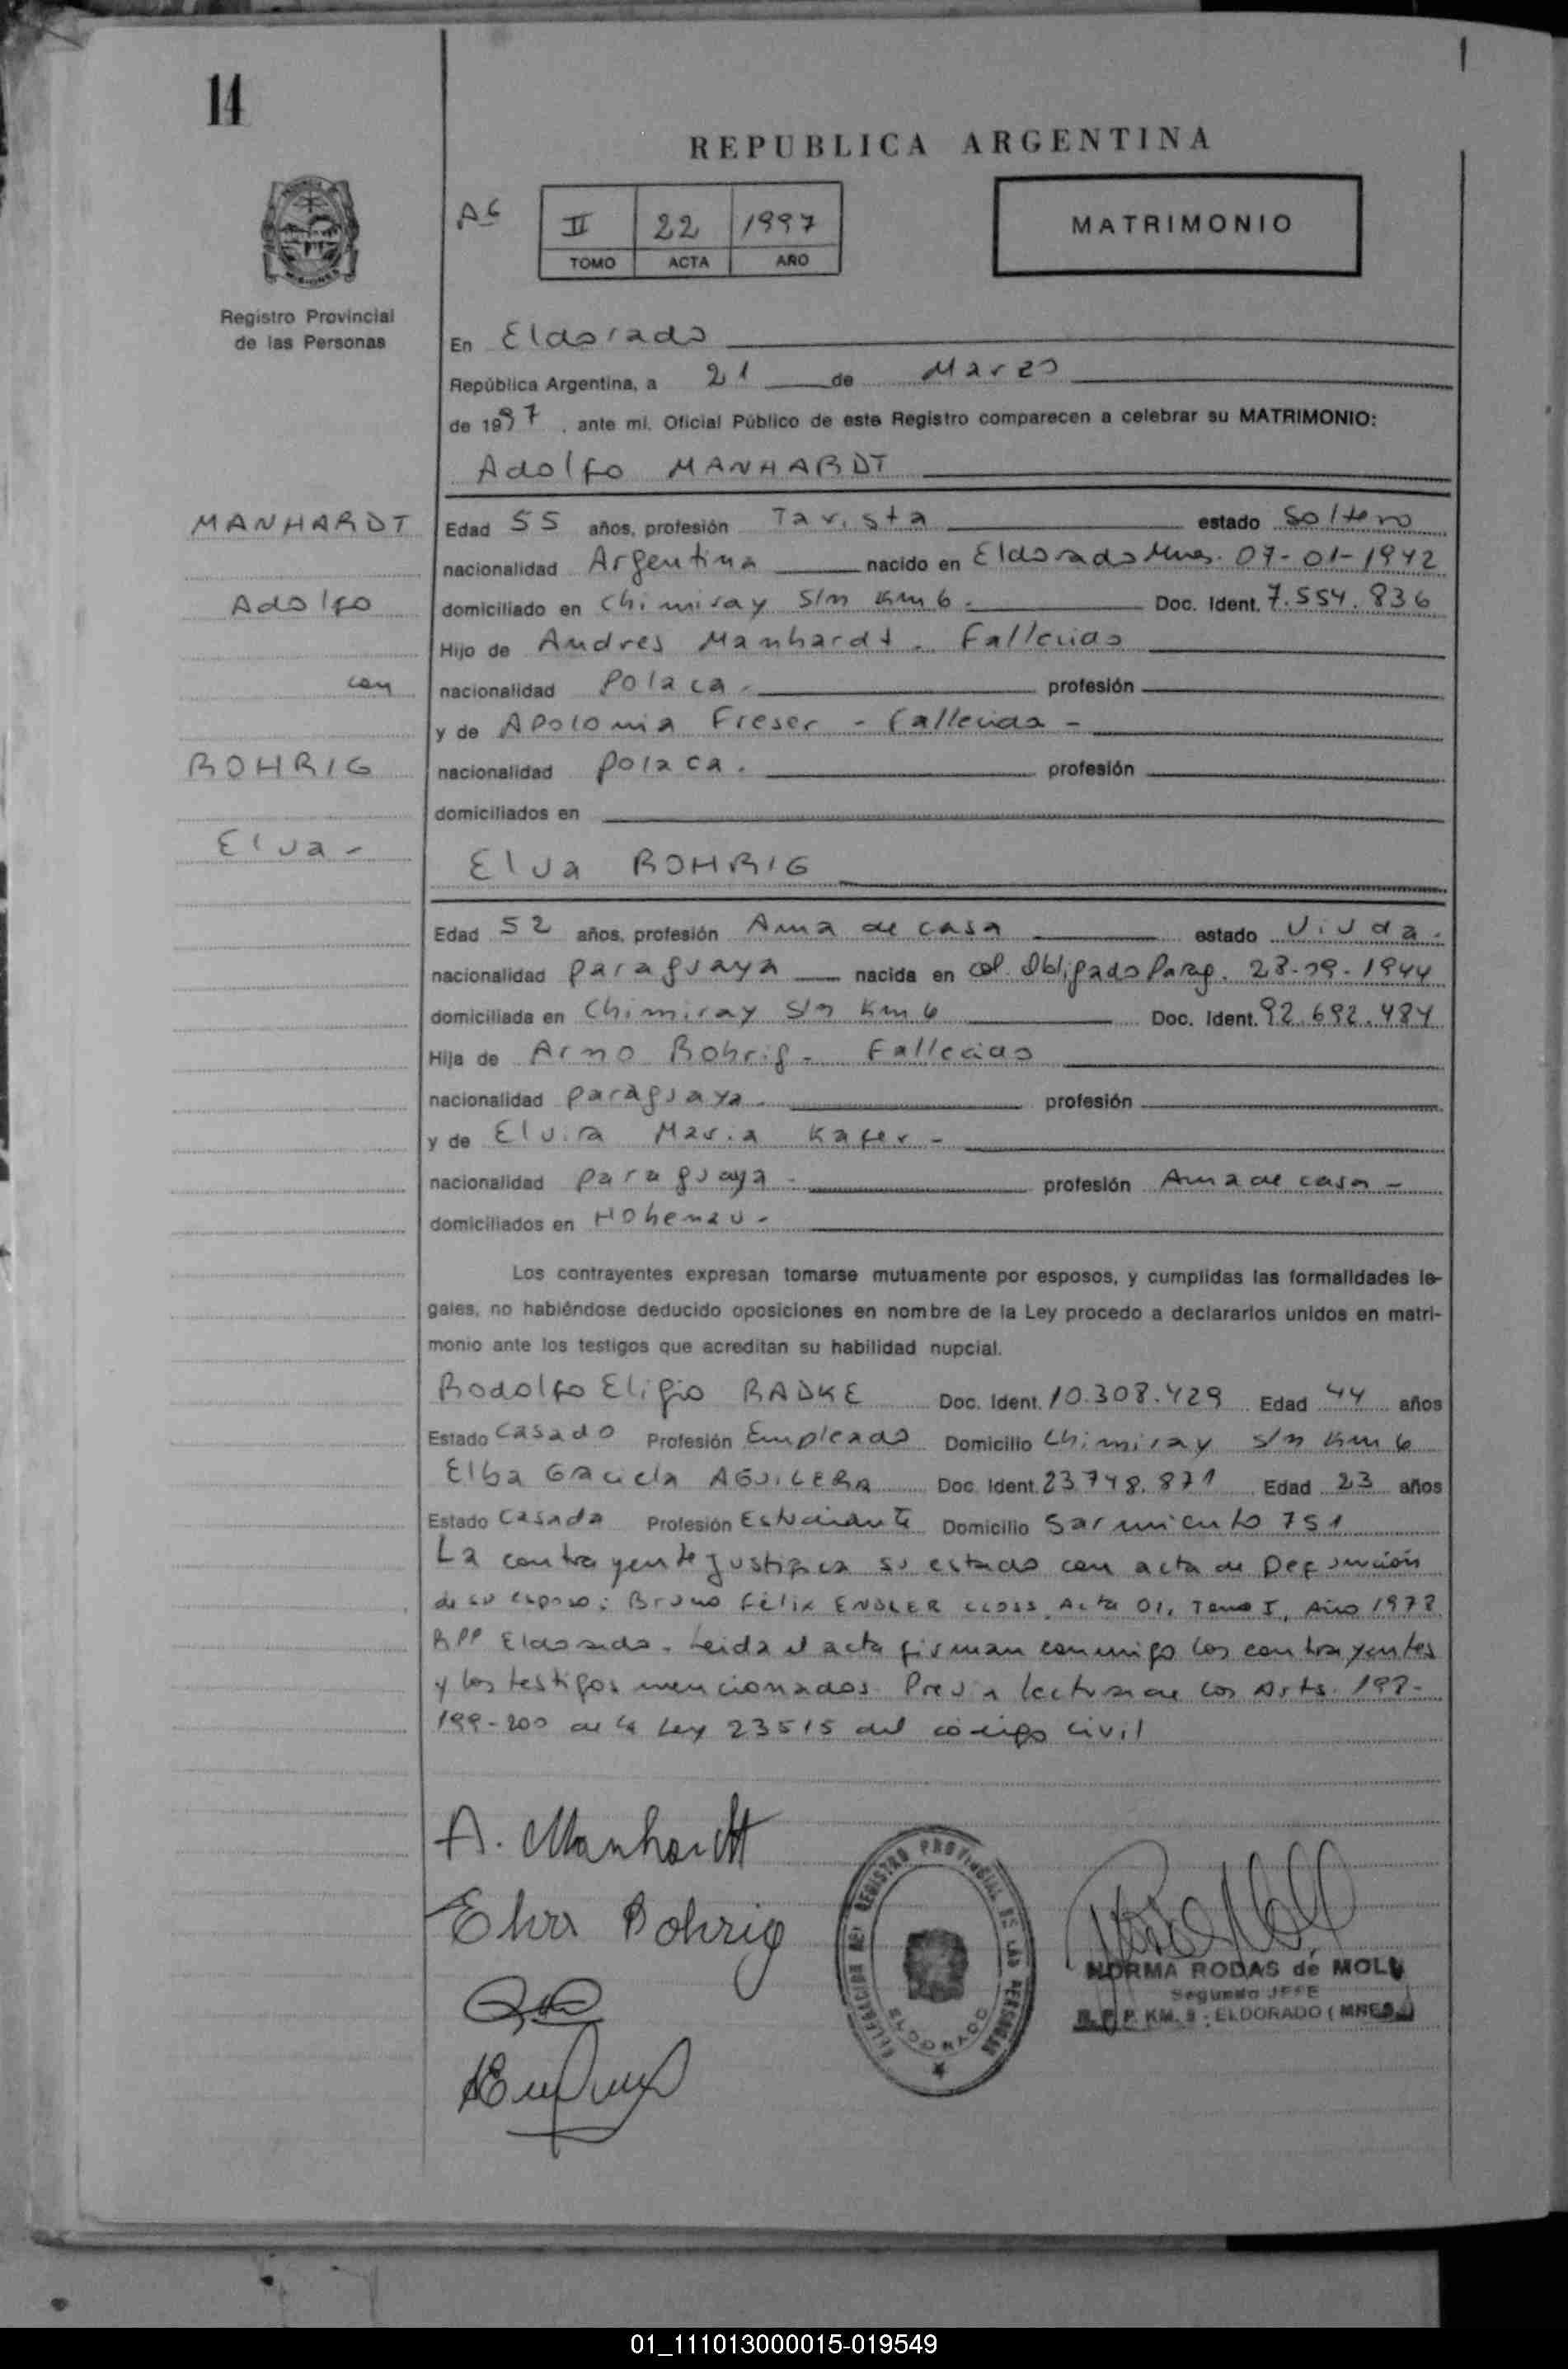 14
REPUBLICA ARGENTINA
II 22 1997
TOMO ACTA AÑO
MATRIMONIO
Registro Provincial
de las Personas
En Eldorado
República Argentina, a 21 de Marzo
de 1997, ante mi, Oficial Público de este Registro comparecen a celebrar su MATRIMONIO:
Adolfo MANHARDT
MANHARDT
Adolfo
con
ROHRIG
Elva -
Edad 55 años, profesión Tarista estado Soltero
nacionalidad Argentina nacido en Eldorado Mnes. 07-01-1942
domiciliado en Chimiray S/n Km 6. Doc. Ident. 7.554.836
Hijo de Andres Manhardt. Fallecido
nacionalidad Polaca. profesión
y de Apolonia Freser - Fallecida -
nacionalidad polaca. profesión
domiciliados en
Elva ROHRIG
Edad 52 años, profesión Ama de casa estado Viuda.
nacionalidad paraguaya nacida en col. Obligado Parag. 28-09-1944
domiciliada en Chimiray S/n Km 6 Doc. Ident. 92.692.484
Hija de Arno Rohrig - Fallecido
nacionalidad paraguaya. profesión
y de Elvira Maria Kafer -
nacionalidad paraguaya - profesión Ama de casa -
domiciliados en Hohenau -
Los contrayentes expresan tomarse mutuamente por esposos, y cumplidas las formalidades le-
gales, no habiéndose deducido oposiciones en nombre de la Ley procedo a declararlos unidos en matri-
monio ante los testigos que acreditan su habilidad nupcial.
Rodolfo Eligio RADKE Doc. Ident. 10.308.429 Edad 44 años
Estado Casado Profesión Empleado Domicilio Chimiray S/n Km 6
Elba Graciela AGUILERA Doc. Ident. 23.748.871 Edad 23 años
Estado Casada Profesión Estudiante Domicilio Sarmiento 751
La contrayente justifica su estado con acta de Defunción
de su esposo: Bruno Félix ENDLER CLOSS, Acta 01, Tomo I, Año 1978
RPP Eldorado. Leida el acta firman conmigo los contrayentes
y los testigos mencionados. Previa lectura de los Arts. 198-
199-200 de la Ley 23515 del código civil
A. Manhardt
Elva Rohrig
DELEGACION DEL REGISTRO PROVINCIAL DE LAS PERSONAS
ELDORADO
NORMA RODAS de MOLL
Segundo JEFE
R.P.P. KM. 9 - ELDORADO (MNES.)
01_111013000015-019549